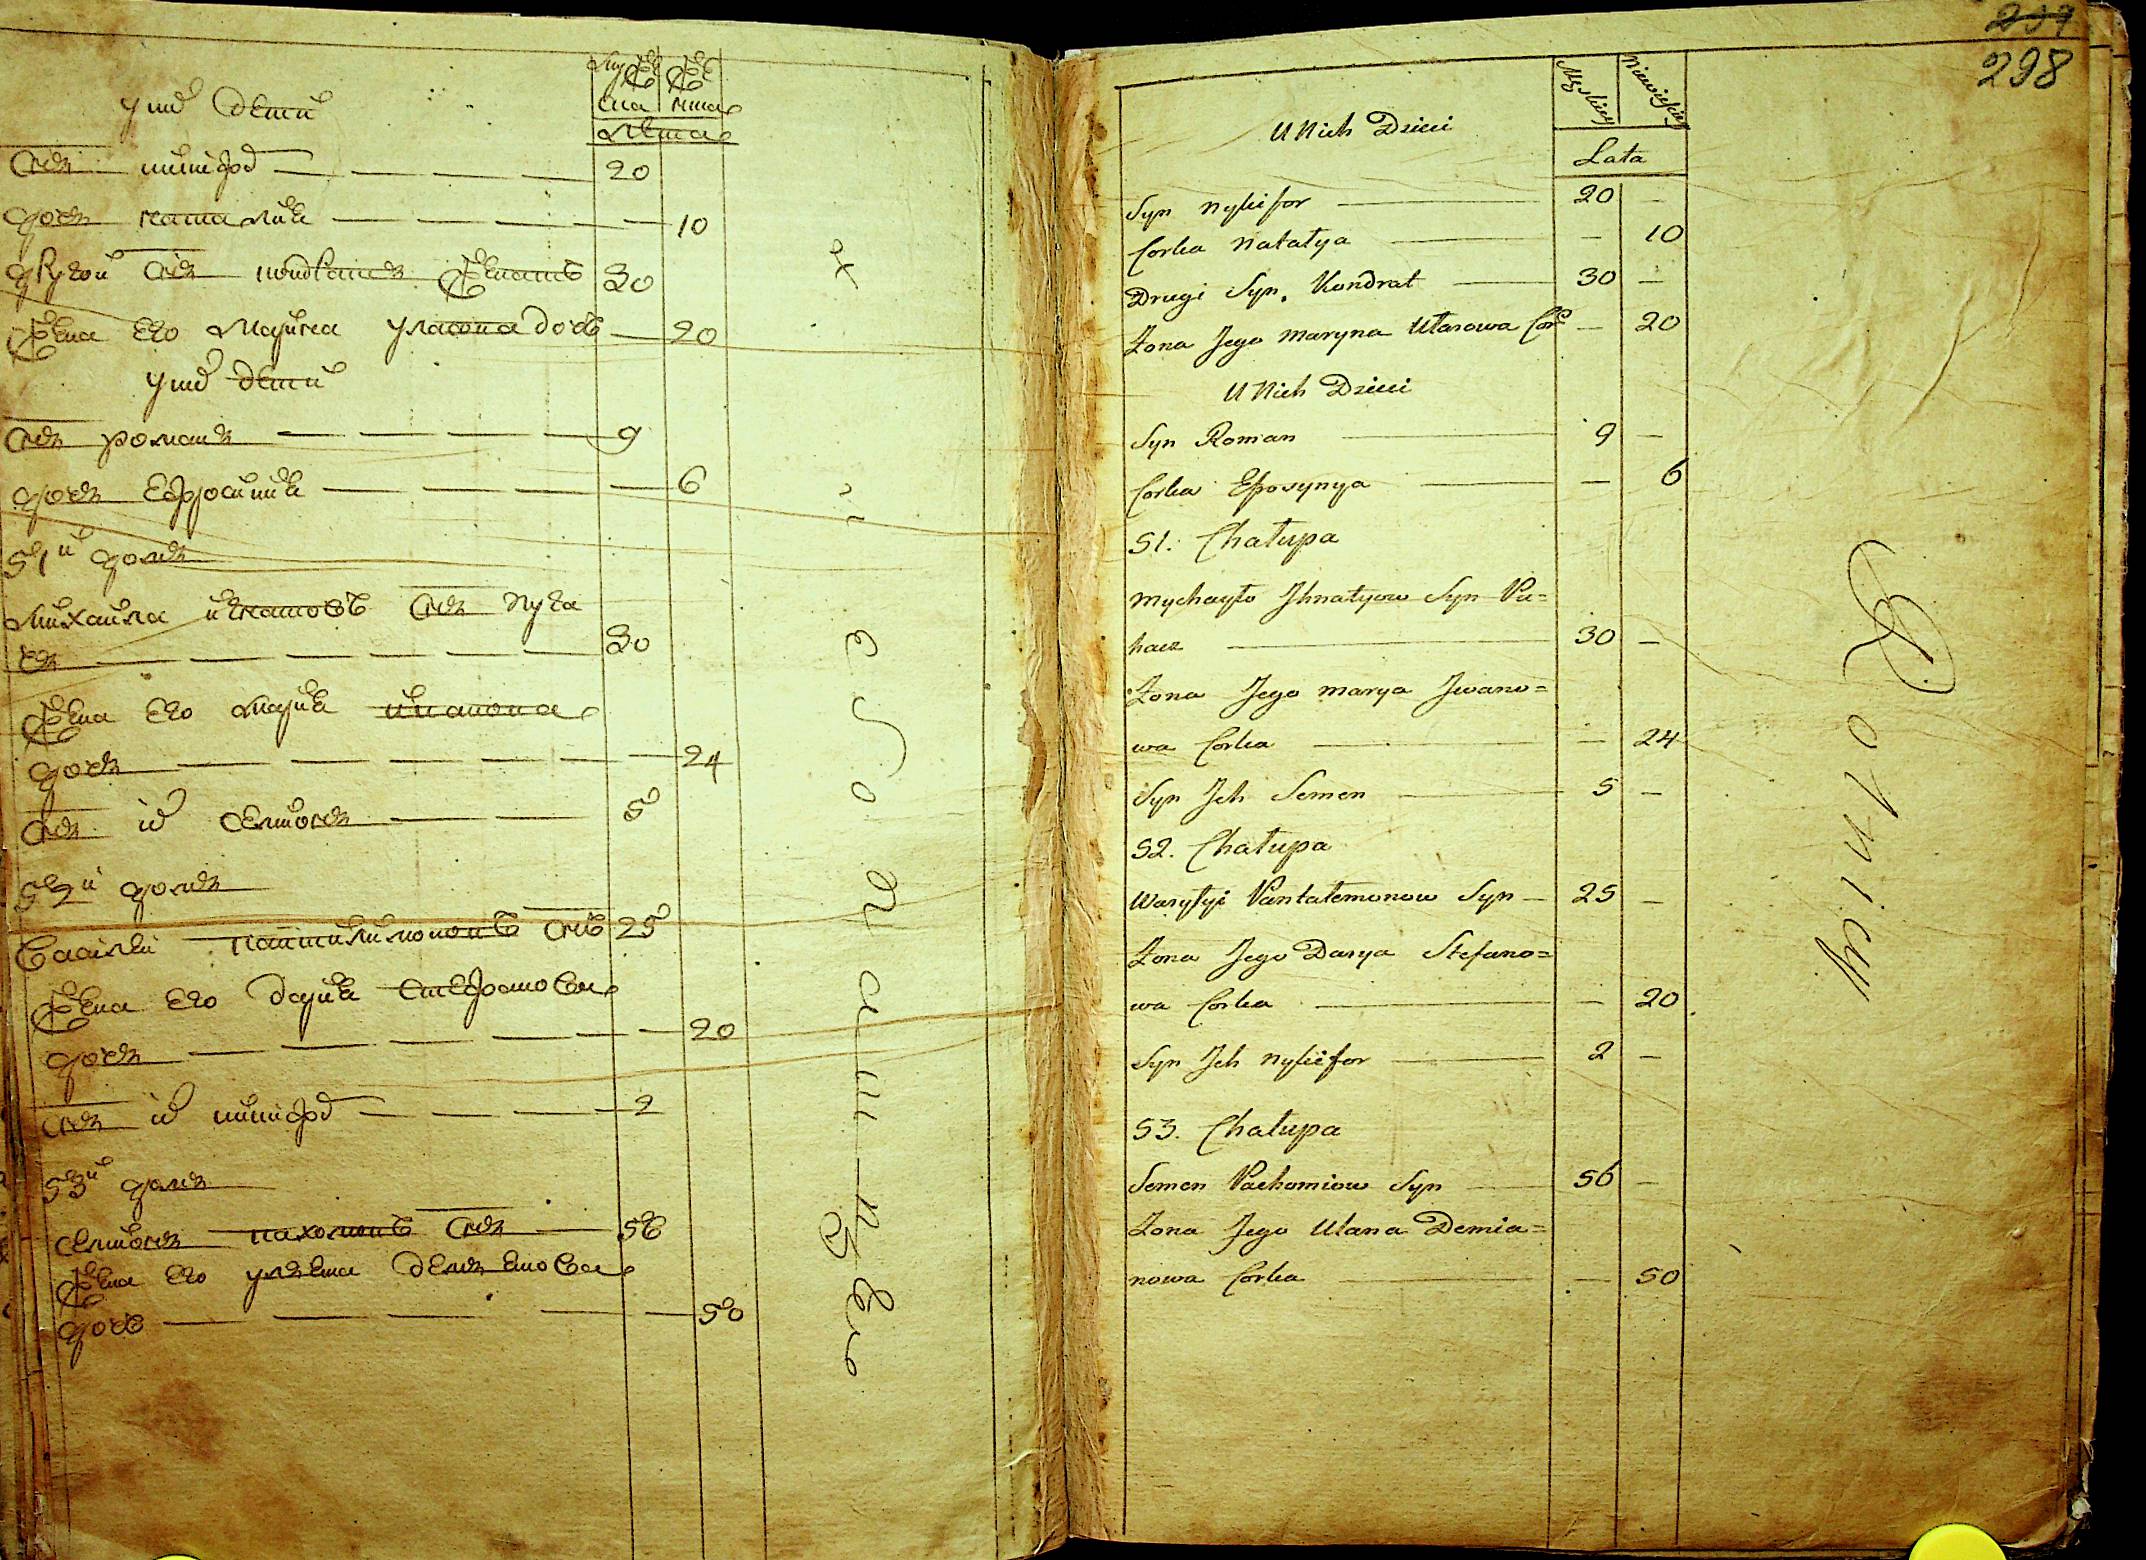 у них дети
Мужеска
Женска
Лета
Сын никифор 20
дочь наталия 10
другой Сын кондрат женат 30
Жена его марина уласова дочь 20
у них дети
Сын роман 9
дочь ефросиния 6
51й дом
михаила игнатов Сын пуга
ч 30
Жена его мария иванова
дочь 24
Сын их семион 5
52й дом
Василий пантилимонов Сын 25
Жена его дария Стефанова
дочь 20
Сын их никифор 2
53й дом
семион пахомов Сын 56
Жена его улияна демянова
дочь 50
298
U Nich Dzieci
Męskiey
Niewieskiey
Lata
Syn Nykifor 20 —
Corka Natalya — 10
Drugi Syn. Kondrat 30 —
Zona Jego Maryna Ułasowa Cor: — 20
U Nich Dzieci
Syn Roman 9 —
Corka Efrosynya — 6
51. Chałupa
Mychayło Jhnatyow Syn Pu=
hacz 30 —
Zona Jego Marya Jwano=
wa Corka — 24
Syn Jch Semen 5 —
52. Chałupa
Wasylyi Pantalemonow Syn — 25 —
Zona Jego Darya Stefano=
wa Corka — 20
Syn Jch Nykifor 2 —
53. Chałupa
Semen Pachomiow Syn 56 —
Zona Jego Ulana Demia=
nowa Corka — 50
Rolnicy